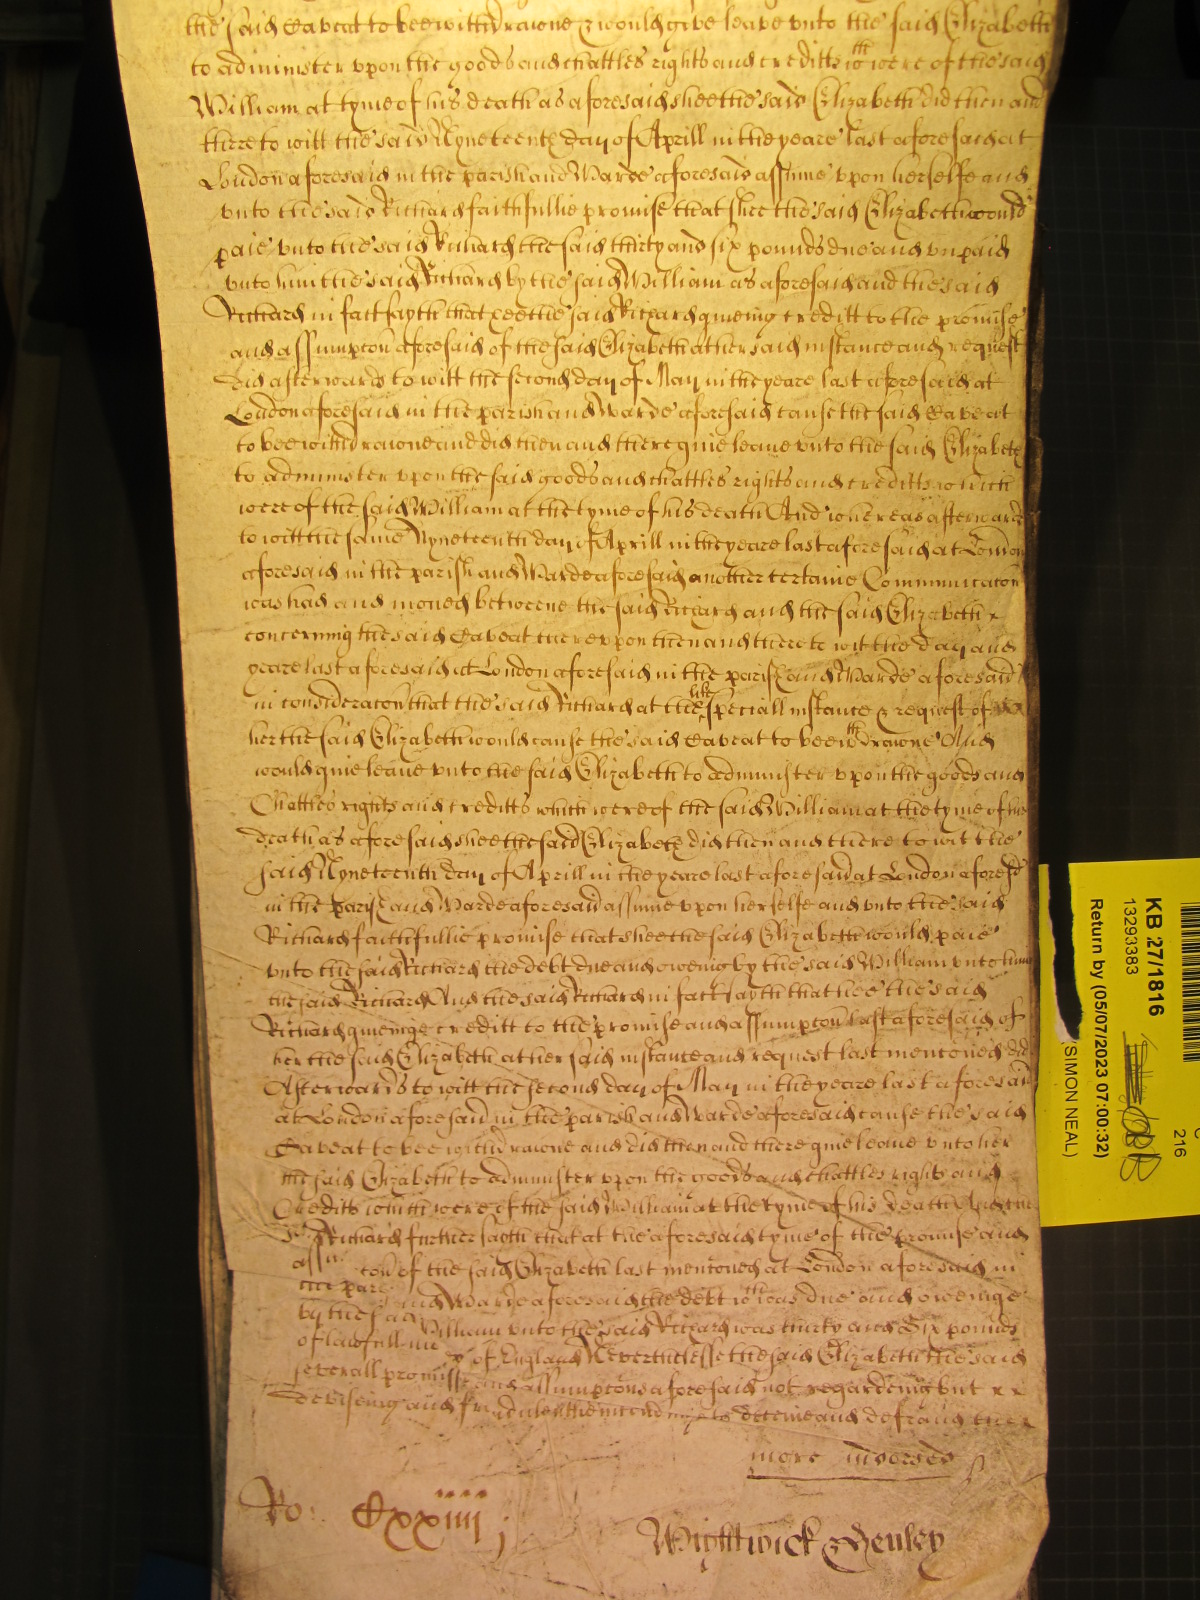 the said Caveat to bee withdrawne & would give leave vnto the said Elizabeth
to administer vpon the goods and chattles rights and creditts wch were of the said
William at tyme of his death as aforesaid shee the said Elizabeth did then and
there to witt the said Nyneteenth day of Aprill in the yeare last aforesaid at
London aforesaid in the parish and Warde aforesaid assume vpon herselfe and
vnto the said Richard faithfullie promise that shee the said Elizabeth would
paie vnto the said Richard the said thirty and six pounds due and vnpaid
vnto him the said Richard by the said William as aforesaid and the said
Richard in fact sayth that hee the said Richard giueing creditt to the promise
and assumpcon aforesaid of the said Elizabeth at her said instance and request
did afterwards to witt the second day of May in the yeare last aforesaid at
London aforesaid in the parish and Warde aforesaid cause the said Caveat
to bee withdrawne and did then and there giue leaue vnto the said Elizabeth
to administer vpon the said goods and chattles rights and creditts which
were of the said William at the tyme of his death And whereas afterwards
to witt the same Nyneteenth day of Aprill in the yeare last aforesaid at London
aforesaid in the parish and Warde aforesaid another certaine Communicacon
was had and moued betweene the said Richard and the said Elizabeth x
concerning the said Caveat therevpon then and there to wit the day and
yeare last aforesaid at London aforesaid in the parish and Warde aforesaid
in consideracon that the said Richard at the like speciall instance & request of
her the said Elizabeth would cause the said Caveat to bee wthdrawne And
would giue leaue vnto the said Elizabeth to administer vpon the goods and
Chattles rights and creditts which were of the said William at the tyme of his
death as aforesaid shee the said Elizabeth did then and there to wit the
said Nyneteenth day of Aprill in the yeare last aforesaid at London aforesd
in the parish and Warde aforesaid assume vpon herselfe and vnto the said
Richard faithfullie promise that shee the said Elizabeth would paie
vnto the said Richard the debt due and oweing by the said William vnto him
the said Richard And the said Richard in fact sayth that hee the said
Richard giueinge creditt to the promise and assumpcon last aforesaid of
her the said Elizabeth at her said instance and request last mentoned did
Afterwards to witt the second day of May in the yeare last aforesaid
at London aforesaid in the parish and Warde aforesaid cause the said
Caveat to bee withdrawne and did then and there giue leaue vnto her
the said Elizabeth to administer vpon the goods and chattles rights and
Credits which were of the said William at the tyme of his death And the
sd Richard further sayth that at the aforesaid tyme of the promise and
con of the said Elizabeth last mentoned at London aforesaid in
the and Warde aforesaid the debt wch was due and oweinge
by the said William vnto the said Richard was thirty and Six pounds
of lawfull of England Neverthelesse the said Elizabeth the said
severall promisses and assumptons aforesaid not regardeing but x x
deviseing and fraudulentlie intending to deceive and defraud
more indorsed
Ro: Cxxiiii
Wightwick Henley
KB 27/1816
13293383
Return by (05/07/2023 07:00:32)
SIMON NEAL)
216